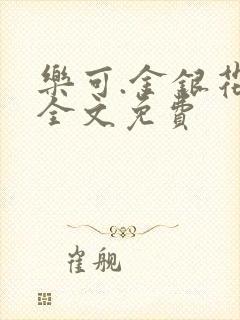 樂可.金銀花
全文免費
崔舰